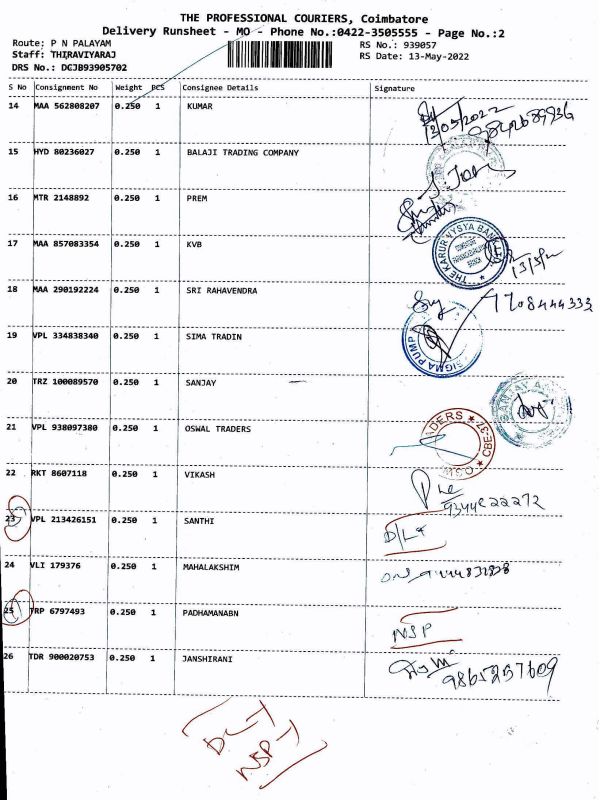 THE PROFESSIONAL COURIERS, Coimbatore
Delivery Runsheet - MO - Phone No.:0422-3505555 - Page No.:2
Route: P N PALAYAM RS No.: 939057
Staff: THIRAVIYARAJ RS Date: 13-May-2022
DRS No.: DCJB93905702
S No Consignment No Weight PCS Consignee Details Signature
14 MAA 562808207 0.250 1 KUMAR
13/05/2022
15 HYD 80236027 0.250 1 BALAJI TRADING COMPANY
16 MTR 2148892 0.250 1 PREM
17 MAA 857083354 0.250 1 KVB
THE KARUR VYSYA BANK
18 MAA 290192224 0.250 1 SRI RAHAVENDRA
7708444333
19 VPL 334838340 0.250 1 SIMA TRADIN
SIGMA PUMP
20 TRZ 100089570 0.250 1 SANJAY
SANJAY
21 VPL 938097380 0.250 1 OSWAL TRADERS
CBE-37
22 RKT 8607118 0.250 1 VIKASH
9344822272
23 VPL 213426151 0.250 1 SANTHI
D/L
24 VLI 179376 0.250 1 MAHALAKSHIM
25 TRP 6797493 0.250 1 PADHAMANABN
NSP
26 TDR 900020753 0.250 1 JANSHIRANI
9865257609
NSP